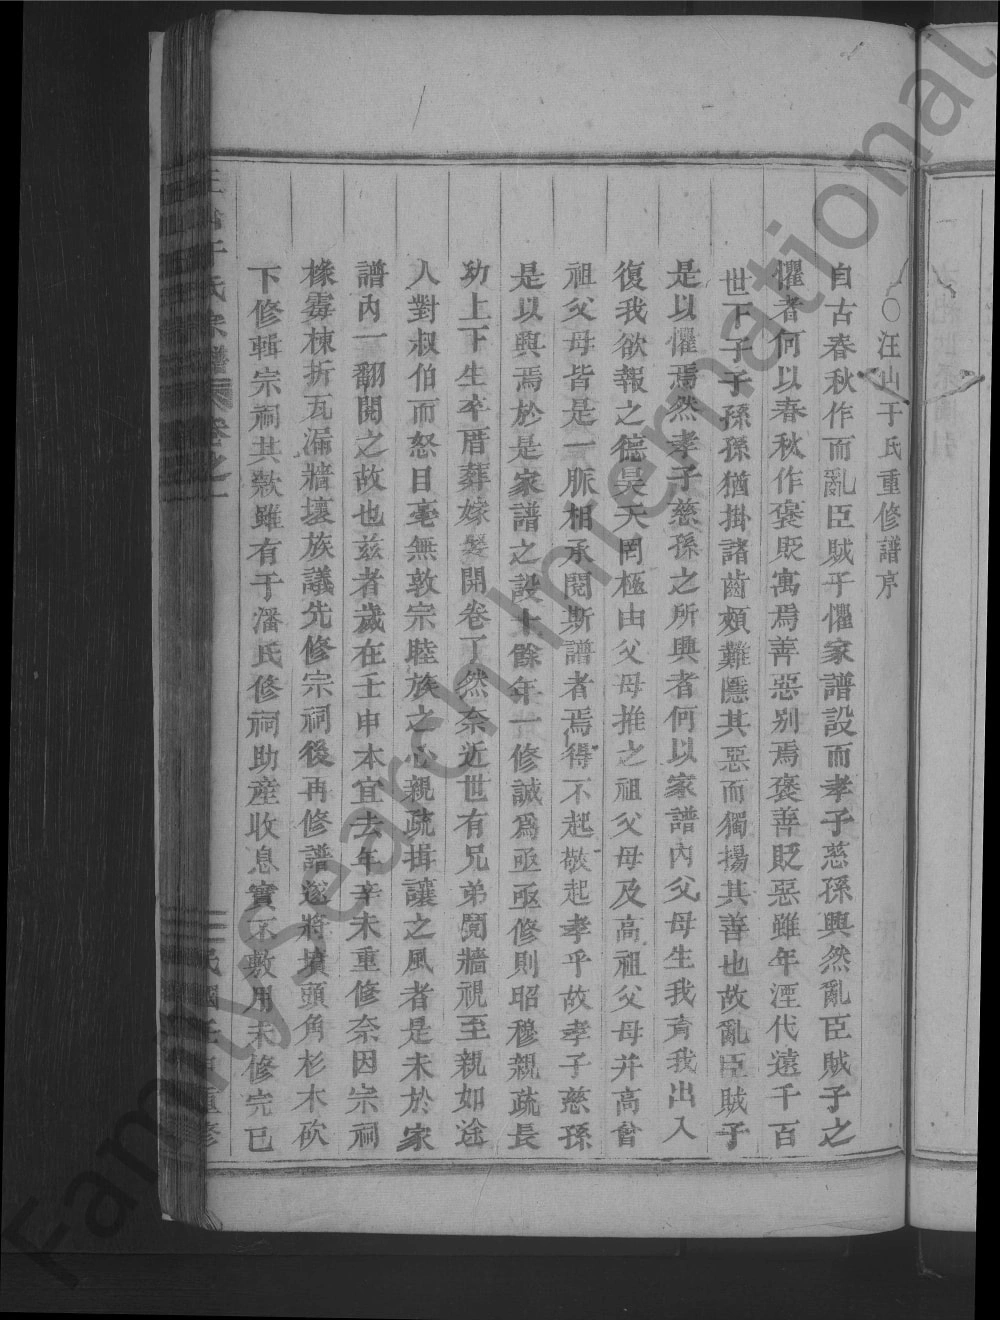 〇汪山于氏重修譜序
自古春秋作而亂臣賊子懼家譜設而孝子慈孫興然亂臣賊子之
懼者何以春秋作褒貶寓焉善惡别焉褒善貶惡雖年湮代遠千百
世下子子孫孫猶掛諸齒頰難隱其惡而獨揚其善也故亂臣賊子
是以懼焉然孝子慈孫之所興者何以家譜內父母生我育我出入
復我欲報之德昊天罔極由父母推之祖父母及高祖父母并高曾
祖父母皆是一脈相承閱斯譜者焉得不起敬起孝乎故孝子慈孫
是以興焉於是家譜之設十餘年一修誠爲亟亟修則昭穆親疏長
功上下生卒厝葬嫁娶開卷了然奈近世有兄弟鬩牆視至親如途
人對叔伯而怒目毫無敦宗睦族之心親疏揖讓之風者是未於家
譜內一翻閱之故也兹者歲在壬申本宜去年辛未重修奈因宗祠
椽霉棟折瓦漏牆壞族議先修宗祠後再修譜遂將墳頭角杉木砍
下修輯宗祠其欵雖有于潘氏修祠助產收息實不敷用未修完已
氏宗譜 卷之一 民國壬申重修
FamilySearch International